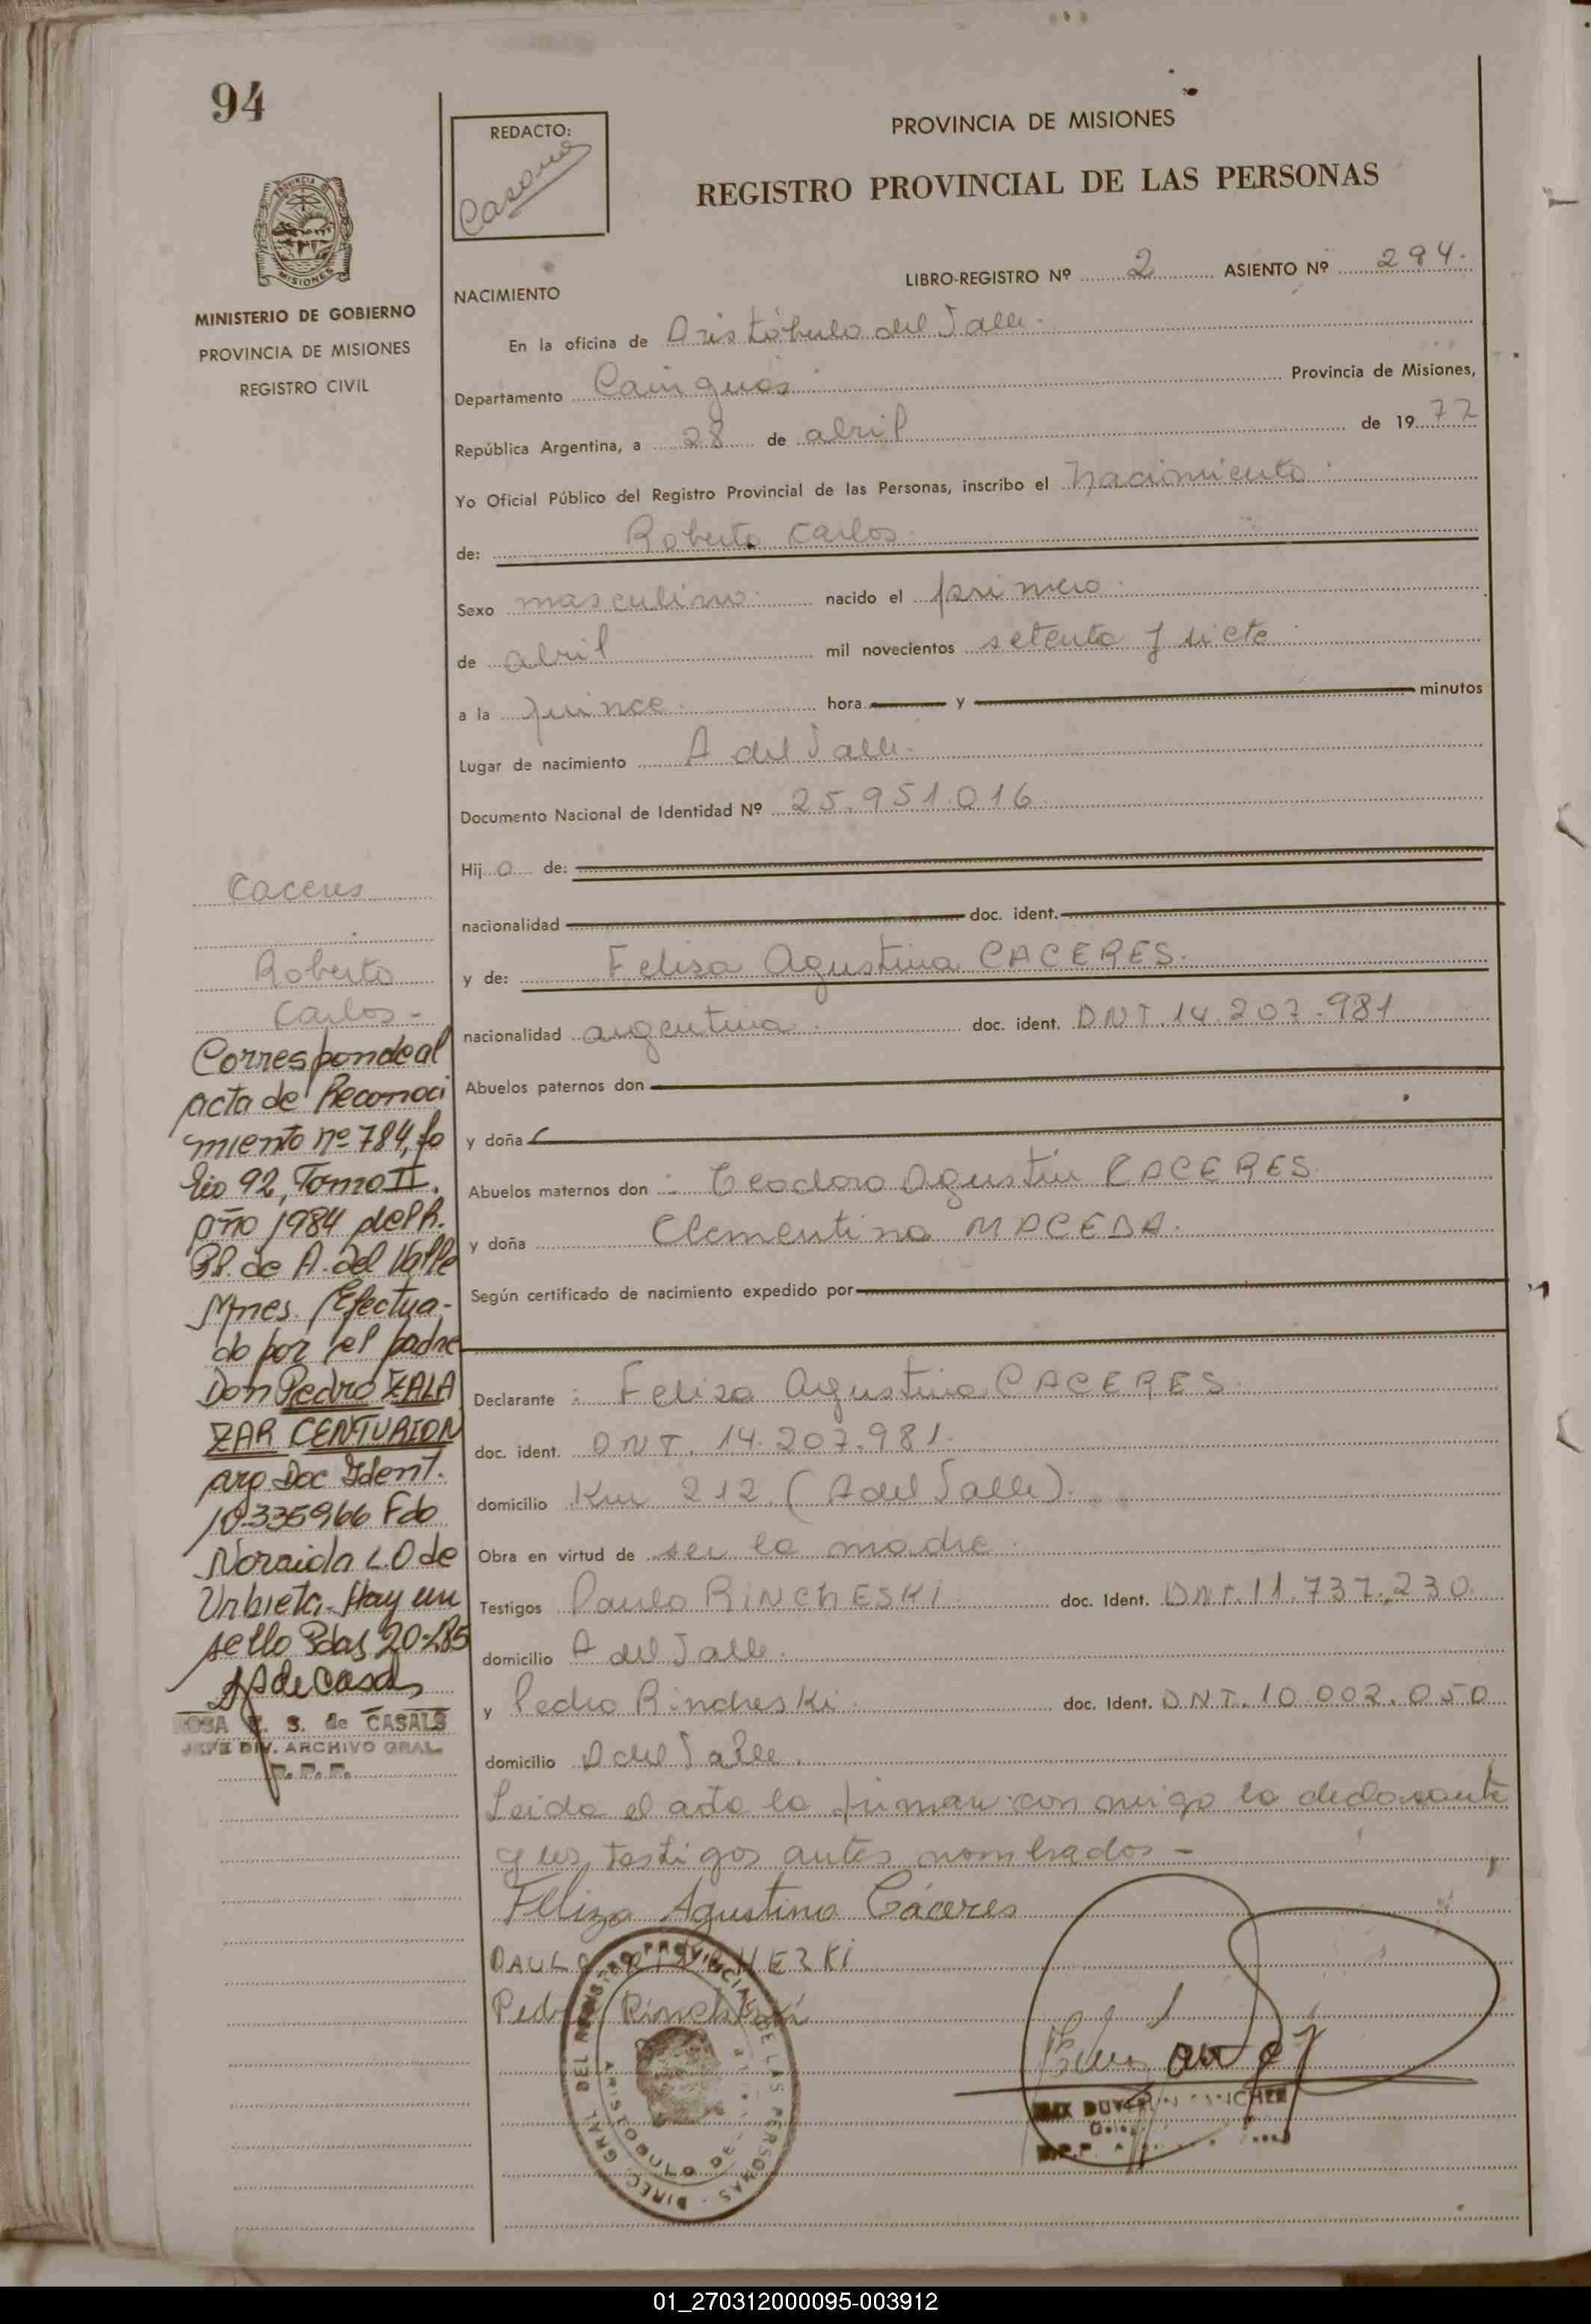 94
REDACTO:
PROVINCIA DE MISIONES
REGISTRO PROVINCIAL DE LAS PERSONAS
PROVINCIA
MISIONES
MINISTERIO DE GOBIERNO
PROVINCIA DE MISIONES
REGISTRO CIVIL
LIBRO-REGISTRO Nº 2 ASIENTO Nº 294.
NACIMIENTO
En la oficina de Aristóbulo del Valle.
Departamento Cainguás Provincia de Misiones,
República Argentina, a 28 de abril de 1977
Yo Oficial Público del Registro Provincial de las Personas, inscribo el nacimiento.
de: Roberto Carlos.
Sexo masculino. nacido el primero.
de abril mil novecientos setenta y siete
a la quince. hora y minutos
Lugar de nacimiento A del Valle.
Documento Nacional de Identidad Nº 25.951.016.
Hijo de:
nacionalidad doc. ident.
y de: Feliza Agustina CACERES.
nacionalidad argentina. doc. ident. DNI. 14.207.981
Abuelos paternos don
y doña
Abuelos maternos don : Teodoro Agustín CACERES.
y doña Clementina MACEDA.
Según certificado de nacimiento expedido por
Declarante : Feliza Agustina CACERES.
doc. ident. DNI. 14.207.981.
domicilio Km 212 (A del Valle).
Obra en virtud de ser la madre.
Testigos Paulo RINCHESKI. doc. Ident. DNI. 11.737.230.
domicilio A del Valle.
y Pedro Rincheski. doc. Ident. DNI. 10.002.050
domicilio A del Valle.
Leida el acta la firman con migo la declarante
y los testigos antes nombrados -
Feliza Agustina Cáceres
PAULO
Pedro Rincheski
Caceres
Roberto
Carlos-
Corresponde al
acta de Reconoci
miento nº 784, fo
lio 92, Tomo II.
año 1984 del R.
PP. de A. del Valle
Mnes. Efectua-
do por el padre
Don Pedro ZALA
ZAR CENTURION
arg. Doc Ident.
10.335966 Fdo
Noraida L.O de
Urbieta. Hay un
sello Pdas 20-2-85
ROSA E. S. de CASALS
JEFE DIV. ARCHIVO GRAL.
R. P. P.
DIREC. GRAL. DEL REGISTRO PROVINCIAL DE LAS PERSONAS
ARISTOBULO DEL
01_270312000095-003912